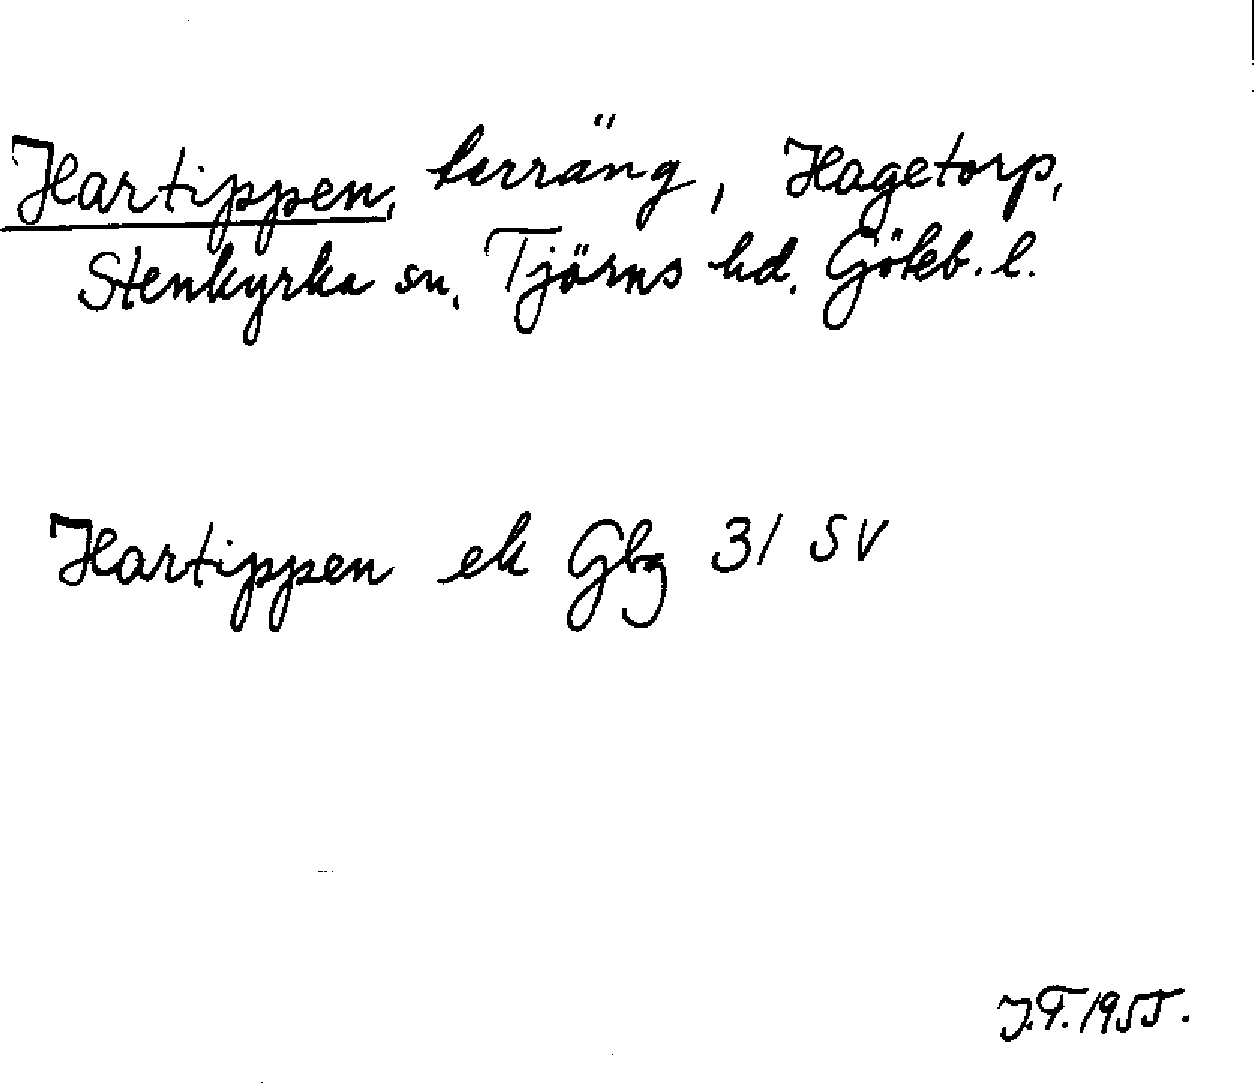 Hartippen, terräng, Hagetorp,
Stenkyrka sn, Tjörns hd. Göteb. l.
Hartippen ek Gbg 31 SV
J.T. 1955.